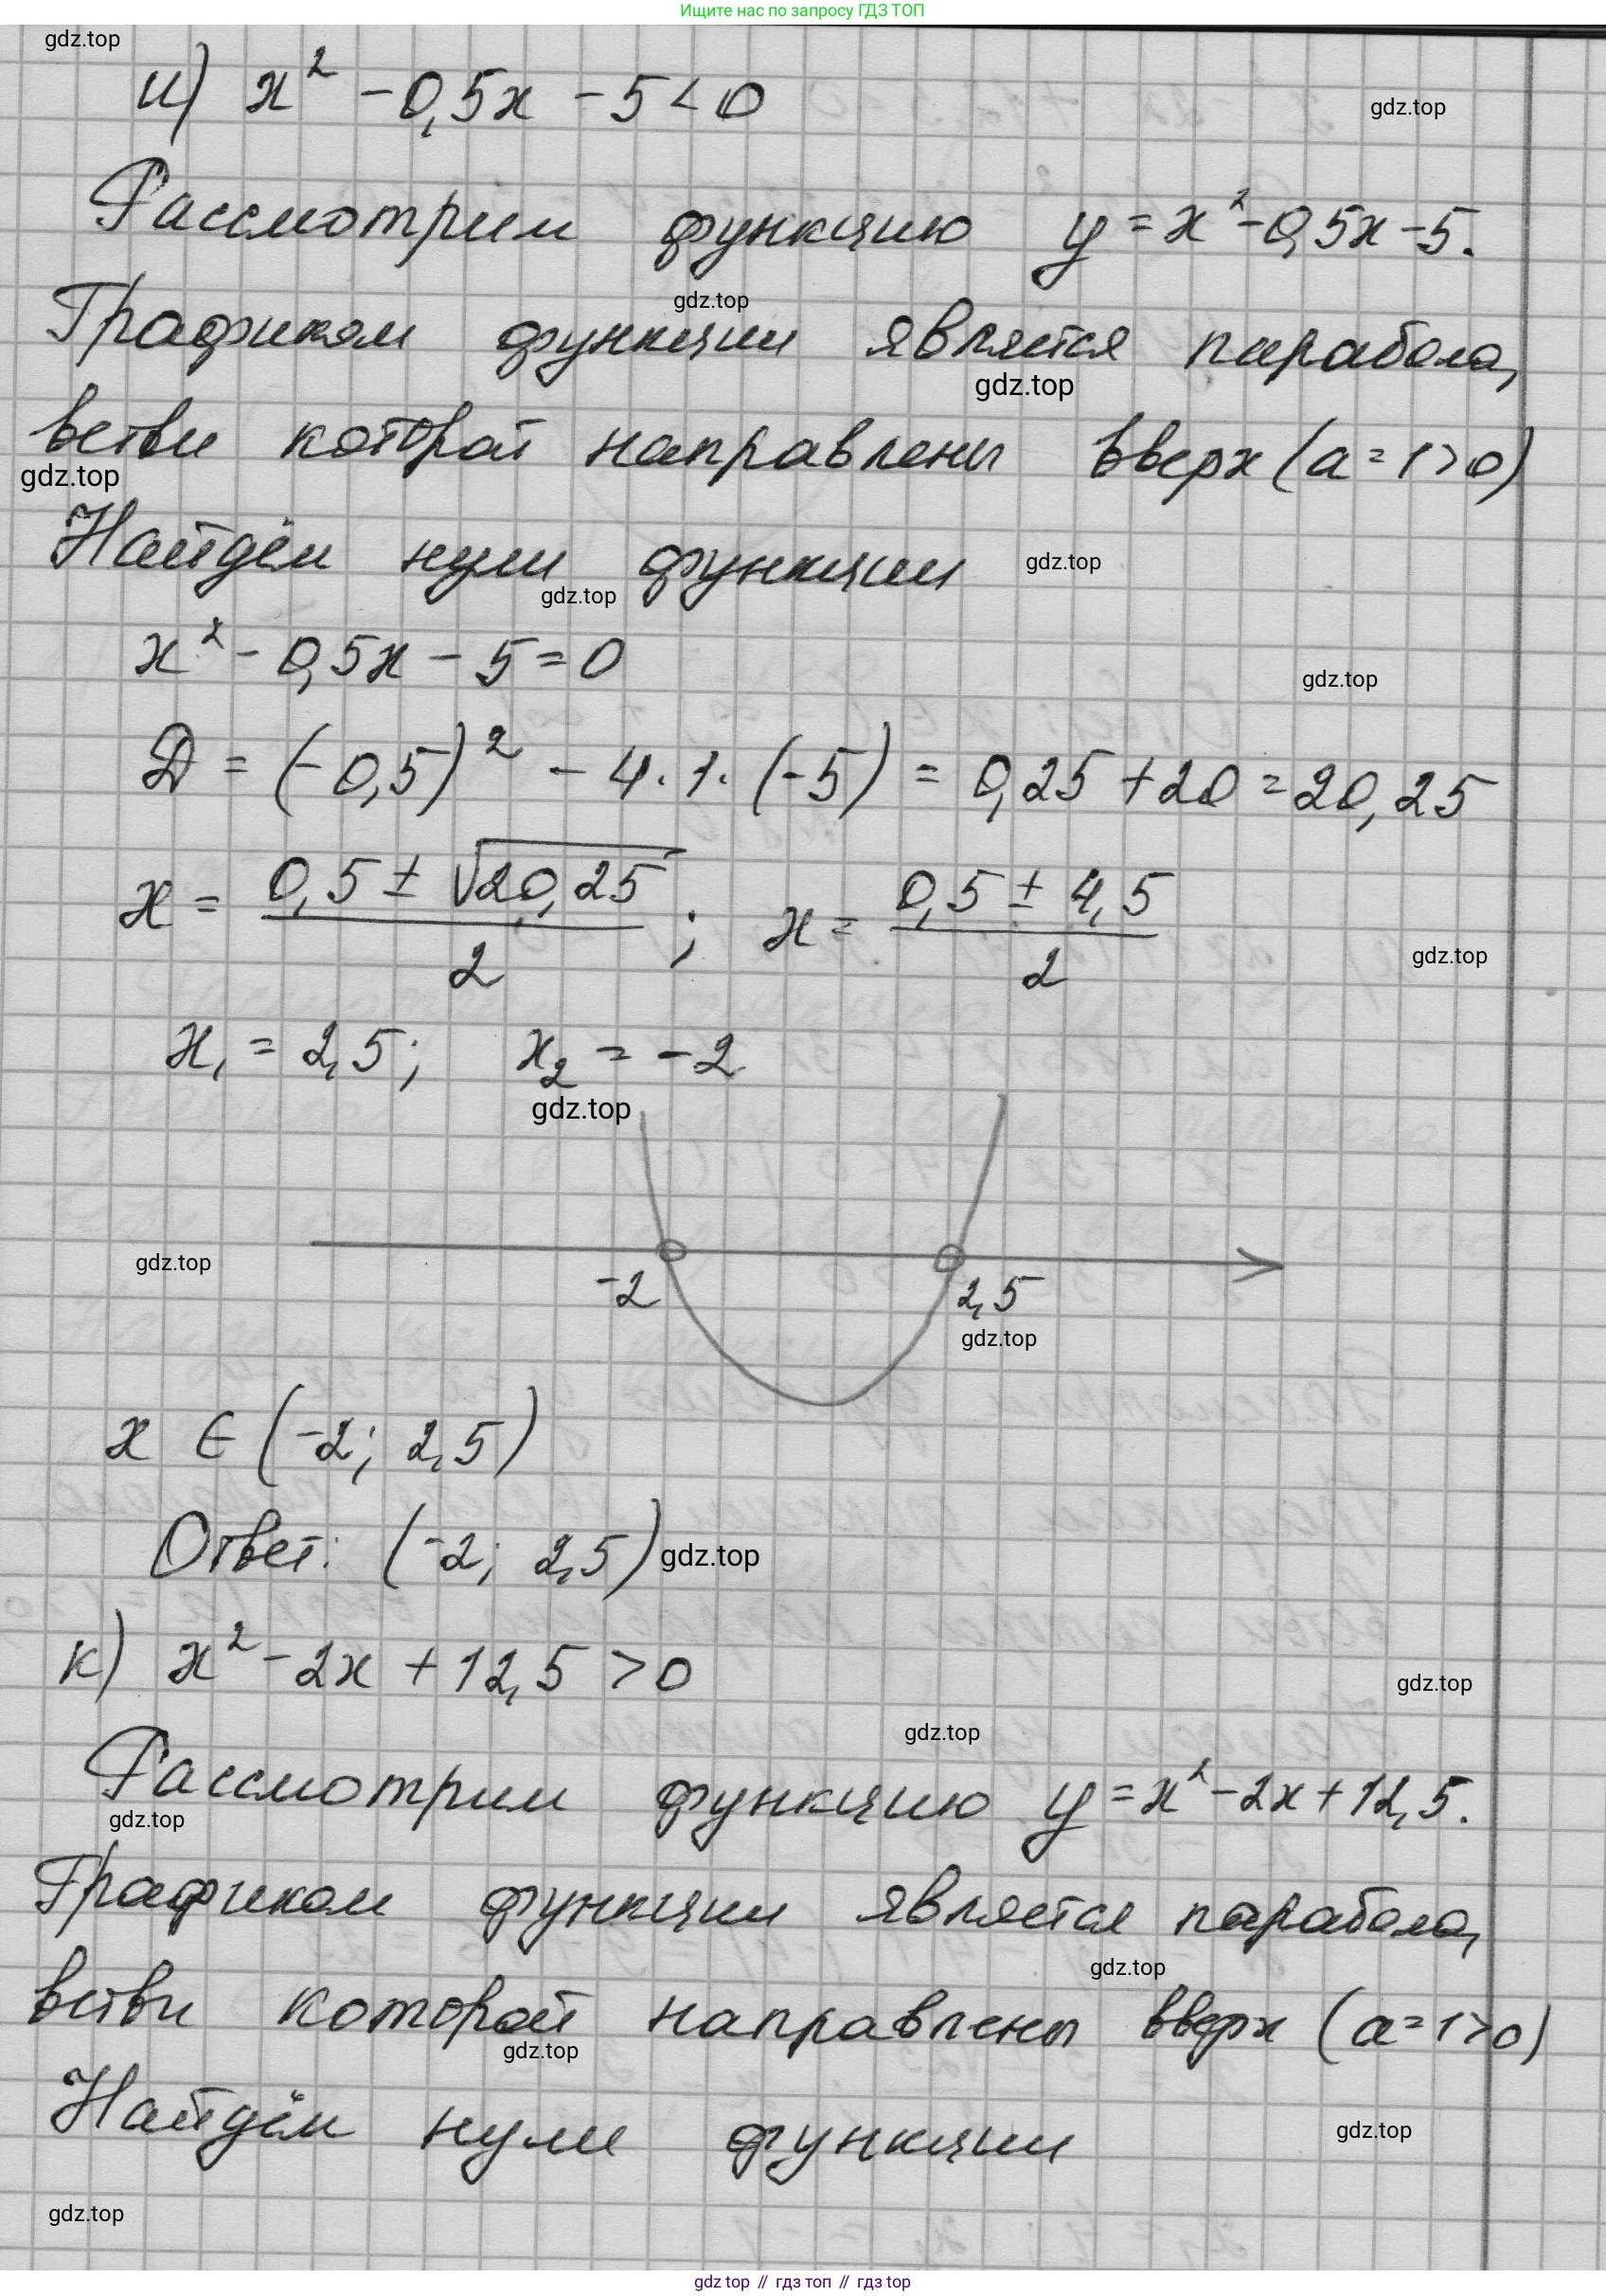 Ищите нас по запросу ГДЗ ТОП
gdz.top
и) x² - 0,5x - 5 < 0
gdz.top
Рассмотрим функцию y = x² - 0,5x - 5.
gdz.top
Графиком функции является парабола,
gdz.top
ветви которой направлены вверх (a = 1 > 0)
gdz.top
Найдём нули функции
gdz.top
gdz.top
x² - 0,5x - 5 = 0
gdz.top
D = (-0,5)² - 4 · 1 · (-5) = 0,25 + 20 = 20,25
x = (0,5 ± √20,25) / 2 ; x = (0,5 ± 4,5) / 2
gdz.top
x₁ = 2,5; x₂ = -2
gdz.top
gdz.top
-2 2,5
gdz.top
x ∈ (-2; 2,5)
Ответ: (-2; 2,5)
gdz.top
к) x² - 2x + 12,5 > 0
gdz.top
gdz.top
Рассмотрим функцию y = x² - 2x + 12,5.
gdz.top
Графиком функции является парабола,
gdz.top
ветви которой направлены вверх (a = 1 > 0)
gdz.top
Найдём нули функции
gdz.top
gdz.top
gdz top // гдз топ // gdz top